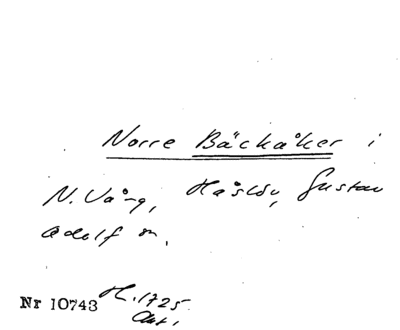 Norre Bäckåker i
N. Vång, Håslöv, Gustav
Adolf sn.
Nr 10743 H. 1725
Akt.